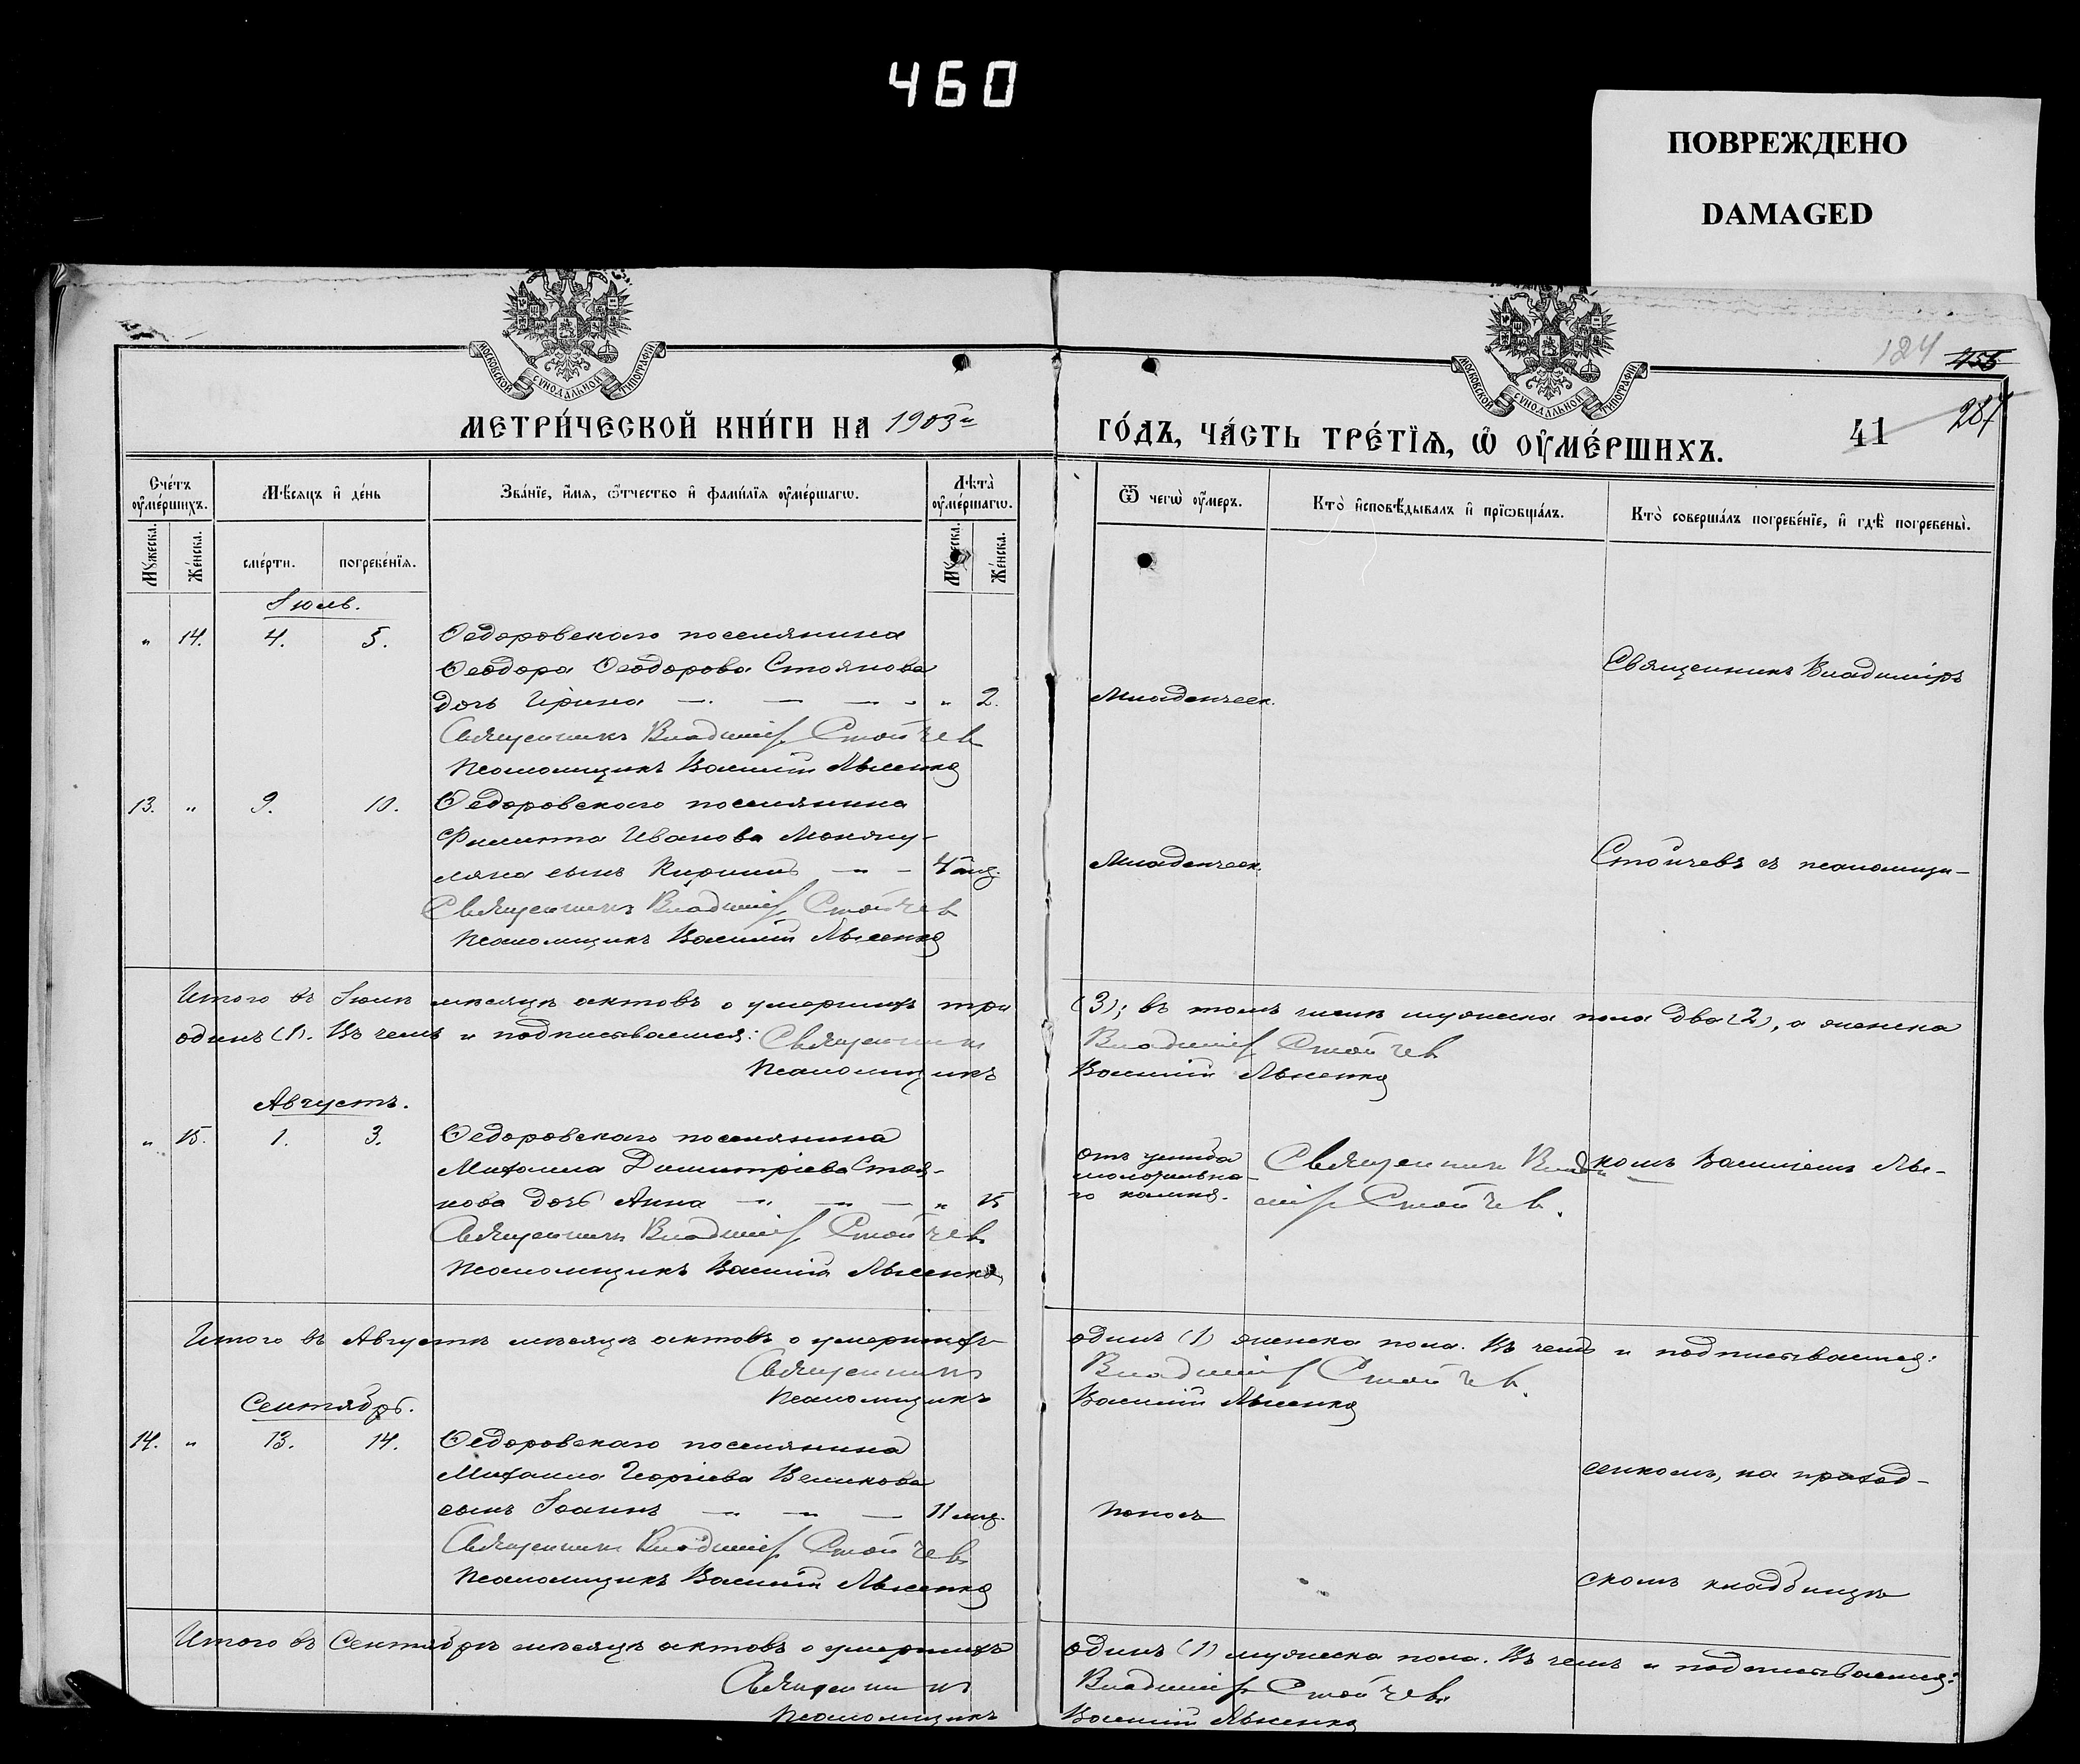 460
ПОВРЕЖДЕНО
DAMAGED
МОСКОВСКОЙ СУНОДАЛЬНОЙ ТИПОГРАФІИ
МОСКОВСКОЙ СУНОДАЛЬНОЙ ТИПОГРАФІИ
124
287
41
МЕТРИ́ЧЕСКОЙ КНИ́ГИ НА 1903й ГО́ДЪ, ЧА́СТЬ ТРЕ́ТІѦ, Ѡ ОУМЕ́РШИХЪ.
Сче́тъ оуме́ршихъ.
Мꙋжеска.
Же́нска.
Мѣ́сяцъ и де́нь
сме́рти.
погребе́нїѧ.
Зва́нїе, и́мѧ, ѻ҆́тчество и фами́лїѧ оуме́ршагѡ.
Лѣ́та оуме́ршагѡ.
Мꙋжеска.
Же́нска.
Ѿ чегѡ̀ оу́меръ.
Кто̀ исповѣ́дывалъ и прїѡбща́лъ.
Кто̀ соверша́лъ погребе́нїе, и гдѣ̀ погребены̀.
Іюль.
" 14. 4. 5. Ѳедоровскаго поселянина
Ѳеодора Ѳеодорова Стоянова
дочь Ирина " 2. Младенческ.
Священникъ Владиміръ
Священникъ Владиміръ Стойчев
Псаломщикъ Василій Лысенко
13. " 9. 10. Ѳедоровскаго поселянина
Филиппа Иванова
сынъ Кириллъ Младенческ.
Стойчевъ съ псаломщи-
Священникъ Владиміръ Стойчев
Псаломщикъ Василій Лысенко
Итого въ Іюлѣ мѣсяцѣ актовъ о умершихъ три (3); въ томъ числѣ мужеска пола два (2), а женска
одинъ (1). Въ чемъ и подписываемся: Священникъ Владиміръ Стойчев
Псаломщикъ Василій Лысенко
Августъ.
" 15. 1. 3. Ѳедоровскаго поселянина
Михаила Димитріева Стоя-
нова дочь Анна " 15
отъ ушиба
молотильна-
го камня.
Священникъ Влади
міръ Стойчев.
комъ Василіемъ Лы-
Священникъ Владиміръ Стойчев
Псаломщикъ Василій Лысенко
Итого въ Августѣ мѣсяцѣ актовъ о умершихъ одинъ (1) женска пола. Въ чемъ и подписываемся:
Священникъ Владиміръ Стойчев.
Псаломщикъ Василій Лысенко
Сентябрь.
14. " 13. 14. Ѳедоровскаго поселянина
Михаила Георгіева Великова
сынъ Іоаннъ 11 мц. Поносъ
сенкомъ, на приход-
Священникъ Владиміръ Стойчев
Псаломщикъ Василій Лысенко
скомъ кладбищѣ
Итого въ Сентябрѣ мѣсяцѣ актовъ о умершихъ одинъ (1) мужеска пола. Въ чемъ и подписываемся:
Священникъ Владиміръ Стойчев
Псаломщикъ Василій Лысенко